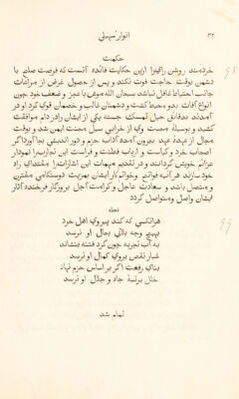 ٣٢ انوار سهيلي
حكمت
خردمند روشن راى را ازين حكايت فائده آنست كه فرصت صلح با
دشمن بوقت حاجت فوت نكند و پس از حصول غرض از مراعات
جانب احتياط غافل نباشد سبحان الله موش با عجز و ضعف خود چون
انواع آفات بدو محيط گشت و دشمنان غالب و خصمان قوى گرد او در
آمدند بدقايق حيل تمسك جسته يكى از ايشان را در دام موافقت
كشيد و بوسيله محبت وى از خرابي سيل محنت ايمن شد و بوقت
مجال از عهده عهد بيرون آمده آداب حزم و دور انديشي بجا آورد اگر
اصحاب خرد و كياست و ارباب فطنت و فراست اين تجارب را نمودار
عزائم خويش گردانند و در تقديم مهمات اين اشارات را مقتداى راه
خود سازند هر آئينه فواتح و خواتم كار ايشان بمزيت دوستكامي مقترن
و متصل باشد و سعادت عاجل و كرامت آجل بروزگار فرخنده آثار
ايشان واصل و متواصل گردد
قطعه
هر آنكسى كه كند پيروئ اهل خرد
بهيچ وجه بنائ بحال او نرسد
به آب تجربه چون گرد فتنه بنشاند
غبار نقص بروى كمال او نرسد
بناى رفعت اگر بر اساس حزم نهاد
خلل برتبه جاه و جلال او نرسد
تمام شد